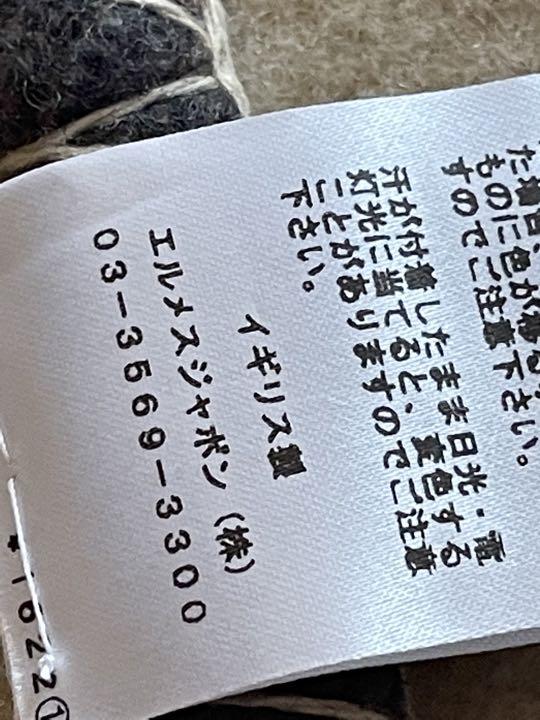 た場合、
ものに色が移る
すのでご注意下さい。
汗が付着したまま日光・電
灯光に当てると、変色する
ことがありますのでご注意
下さい。
イギリス製
エルメスジャポン(株)
03-3569-3300
*1622①